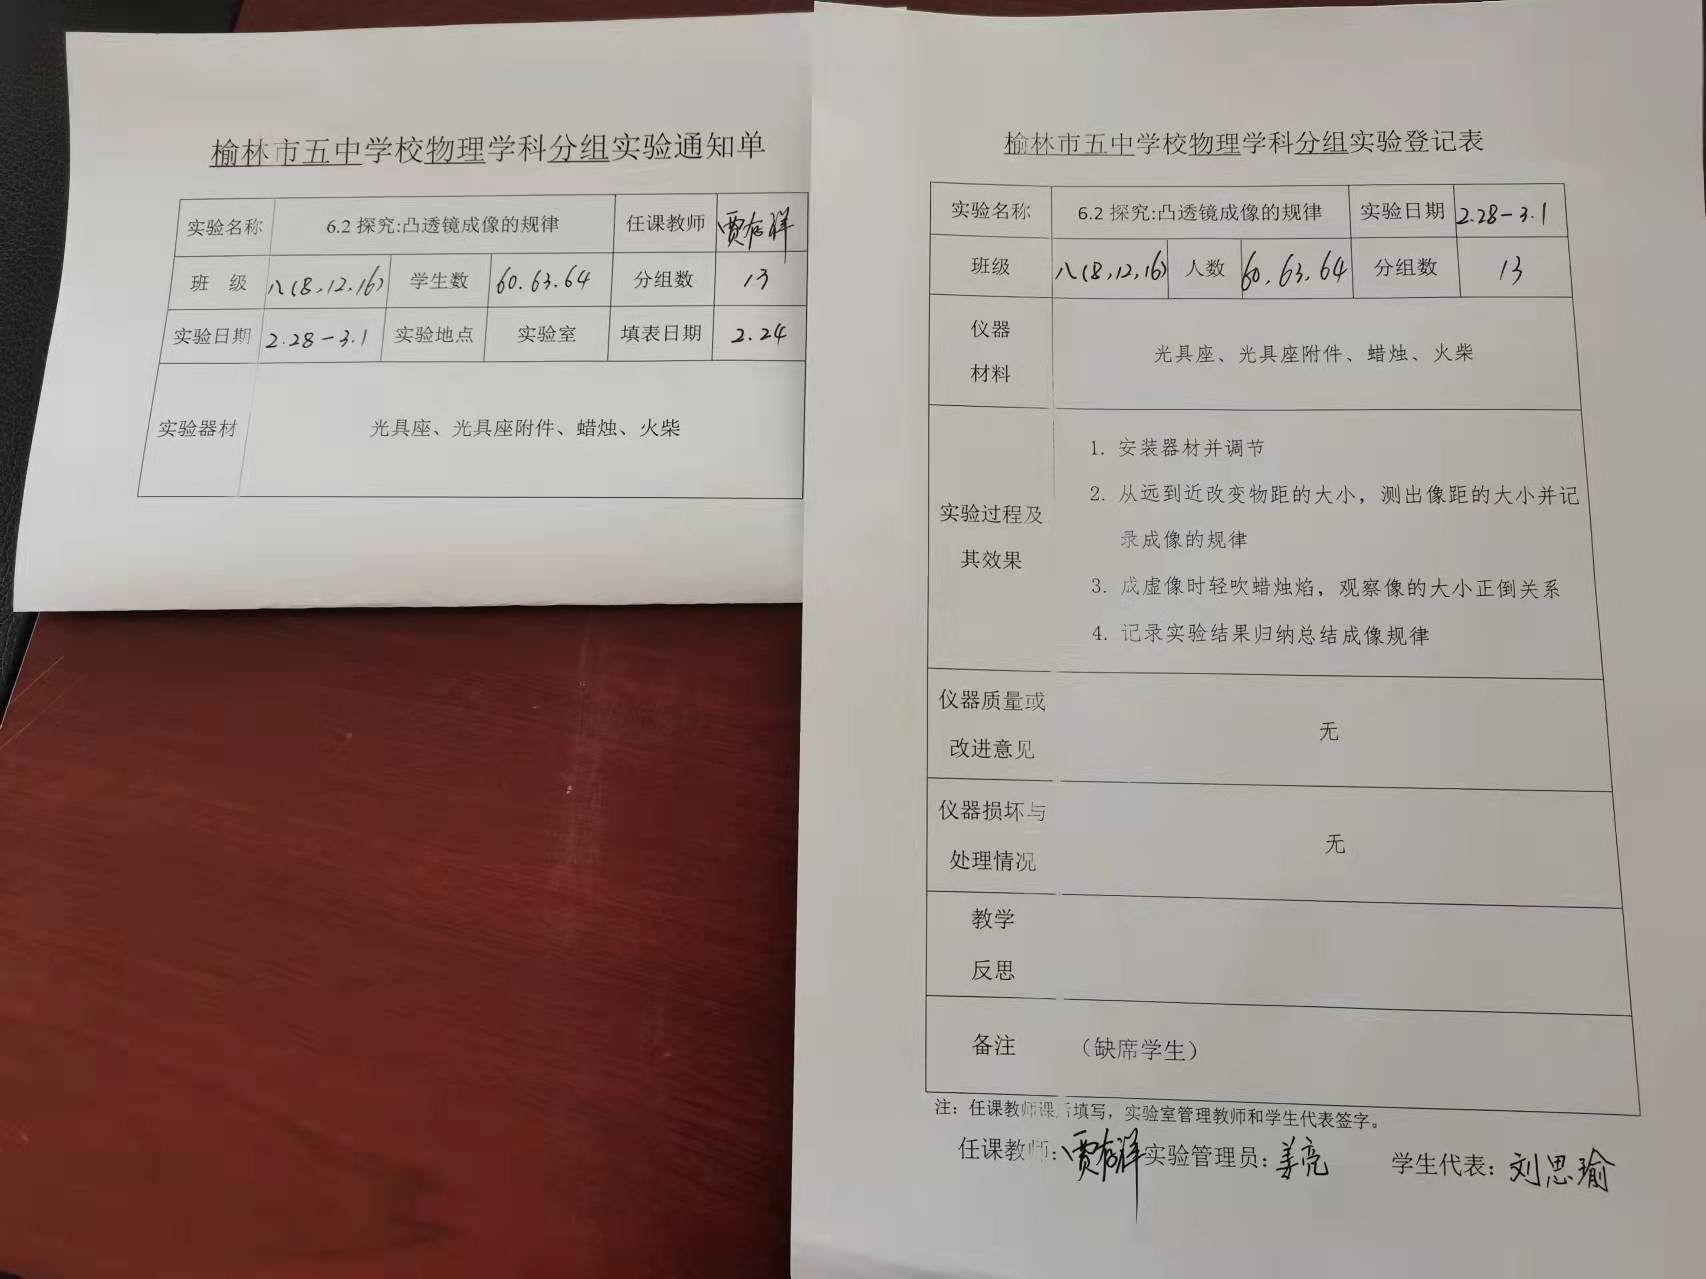 榆林市五中学校物理学科分组实验通知单
实验名称 6.2 探究:凸透镜成像的规律 任课教师 贾存祥
班 级 八(8,12,16) 学生数 60.63.64 分组数 13
实验日期 2.28-3.1 实验地点 实验室 填表日期 2.24
实验器材 光具座、光具座附件、蜡烛、火柴
榆林市五中学校物理学科分组实验登记表
实验名称 6.2 探究:凸透镜成像的规律 实验日期 2.28-3.1
班级 八(8,12,16) 人数 60.63.64 分组数 13
仪器
材料
光具座、光具座附件、蜡烛、火柴
实验过程及
其效果
1. 安装器材并调节
2. 从远到近改变物距的大小，测出像距的大小并记
录成像的规律
3. 成虚像时轻吹蜡烛焰，观察像的大小正倒关系
4. 记录实验结果归纳总结成像规律
仪器质量或
改进意见
无
仪器损坏与
处理情况
无
教学
反思
备注 （缺席学生）
注：任课教师课后填写，实验室管理教师和学生代表签字。
任课教师：贾存祥 实验管理员：姜亮 学生代表：刘思瑜